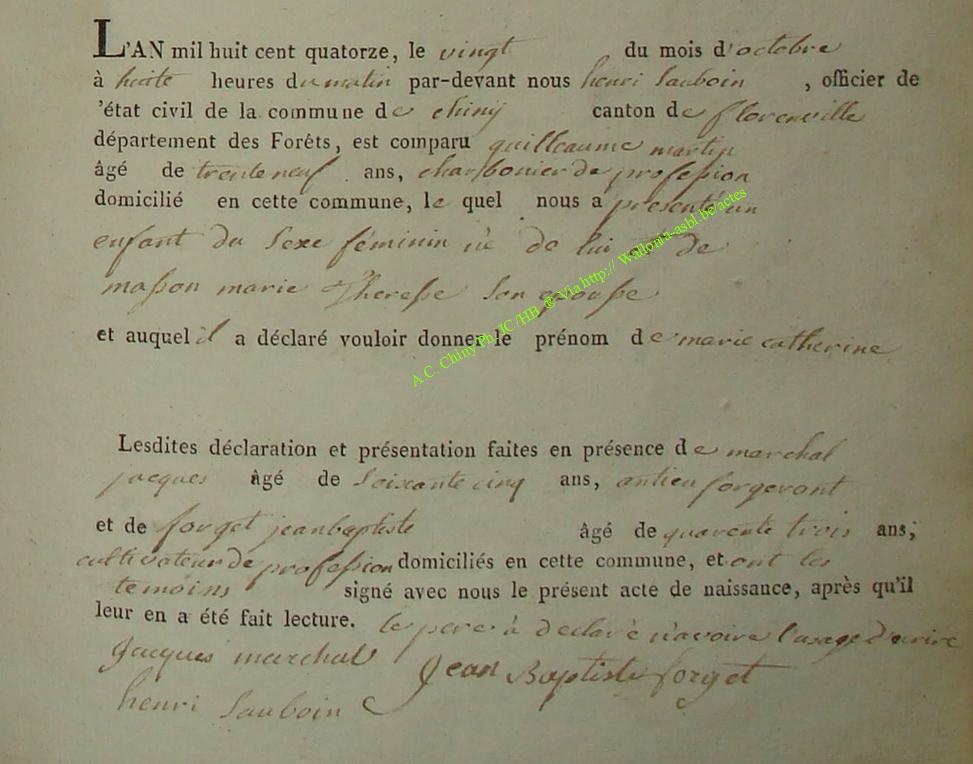 L'AN mil huit cent quatorze, le vingt du mois d'octobre
à huite heures du matin par-devant nous henri Sauboin , officier de
'état civil de la commune de chiny canton de florenville
département des Forêts, est comparu guilleaume martin
âgé de trente neuf ans, charbonier de profession
domicilié en cette commune, le quel nous a présenté un
enfant du Sexe féminin né de lui et de
masson marie Therese son epouse
et auquel il a déclaré vouloir donner le prénom de marie catherine
Lesdites déclaration et présentation faites en présence de marchal
jacques âgé de Soixante cinq ans, antien forgeront
et de forget jean baptiste âgé de quarente trois ans;
cultivateur de profession domiciliés en cette commune, et ont les
temoins signé avec nous le présent acte de naissance, après qu'il
leur en a été fait lecture. le pere à déclaré n'avoire l'usage d'ecrire
Jacques marchal Jean Baptiste forget
henri Sauboin
A.C. Chiny Ph. JC/HB ® Via http:// Wallonia-asbl.be/actes